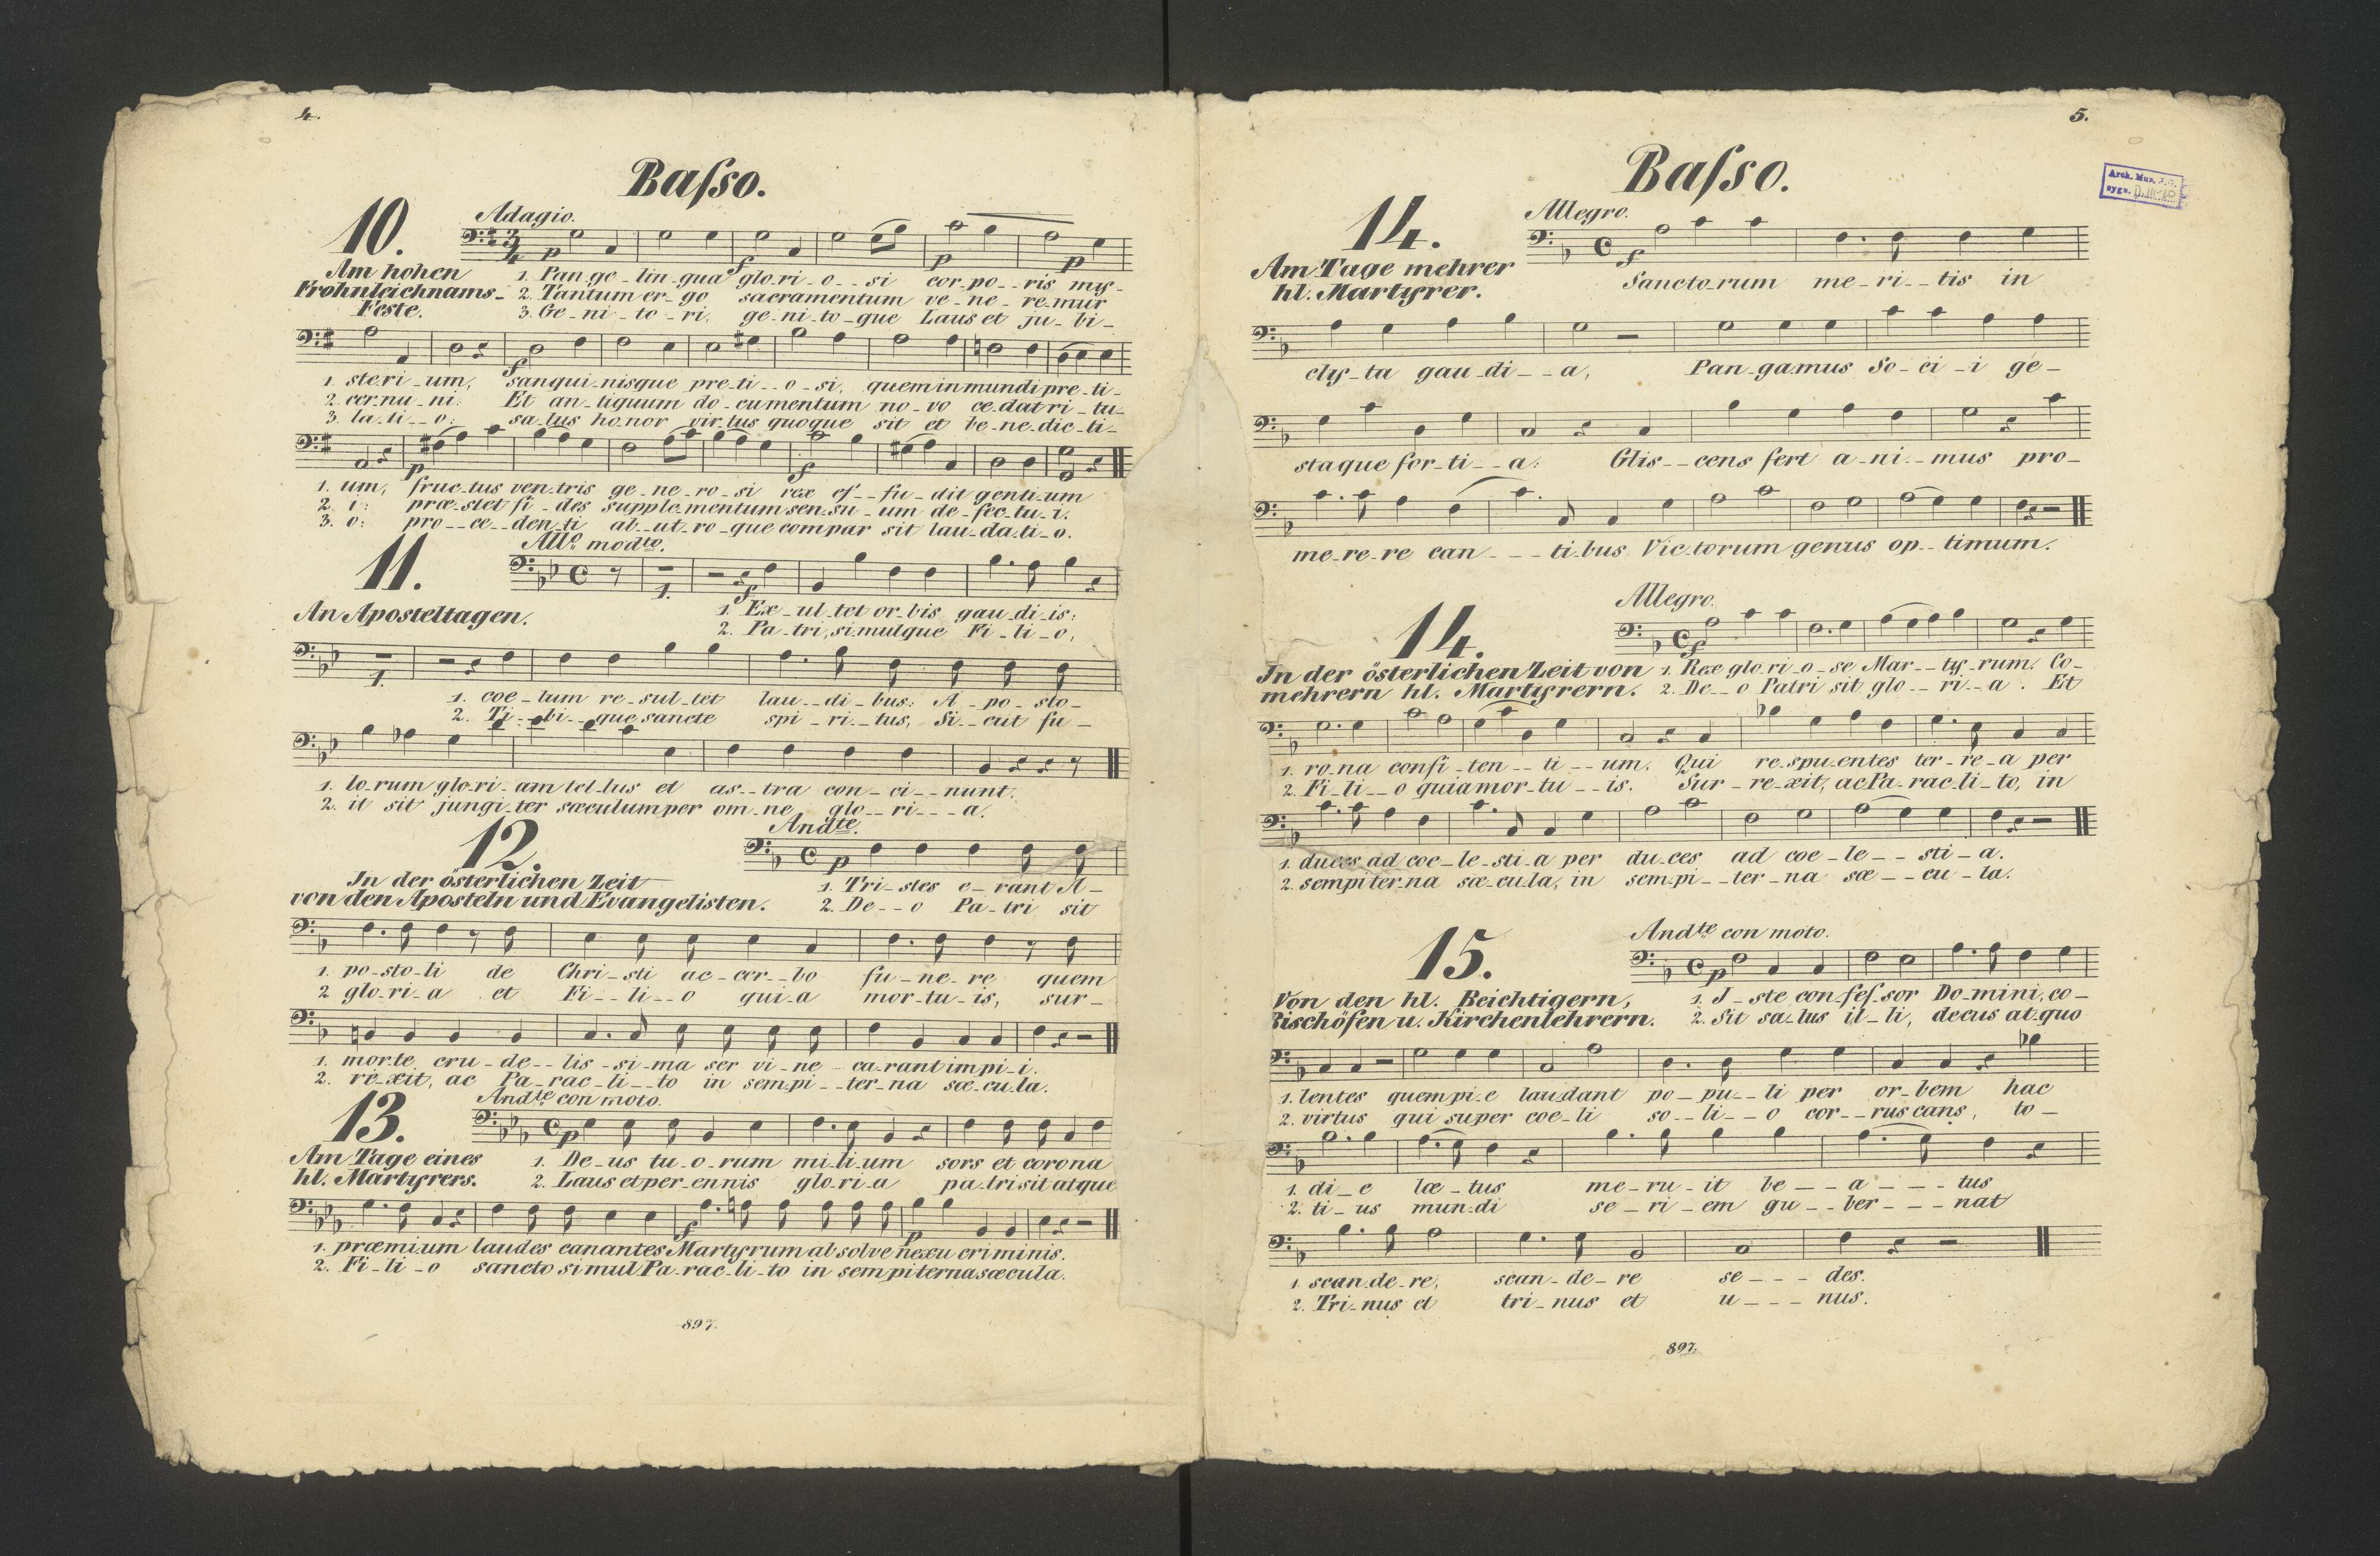 4.
Baſso.
10.
Adagio.
Am hohen
Frohnleichnams-
Feste.
p f p p
1. Pan-ge-lin-gua glo-ri-o--si cor-po--ris my-
2. Tantum er-go sacramentum ve-ne-re-mur
3. Ge-ni-to-ri, ge-ni-to-que Laus et ju-bi-
f
1. ste-ri-um, sanqui-nisque pre-ti--o-si, quem in mundi pre-ti-
2. cer-nu-ni: Et an-tiguum do-cumentum no-vo ce-dat ri-tu-
3. la-ti--o: sa-lus ho-nor vir-tus quoque sit et be-ne-dic-ti-
p f
1. um, fruc-tus ven-tris ge-ne-ro-si rex ef--fu-dit genti-um
2. i: præ-stet fi-des supple-mentum sen-su-um de-fec-tu-i.
3. o: pro--ce--den-ti ab-ut-ro-que compar sit lau-da-ti-o.
11.
Allo modto.
An Aposteltagen.
1. f
1. Ex-ul-tet or-bis gau-di-is:
2. Pa-tri, simulque Fi-li-o,
1.
1. coe-lum re-sul-tet lau--di-bus: A-po-sto-
2. Ti--bi--que sancte spi-ri-tus, Si--cut fu-
1. lo-rum glo-ri-am tel-lus et as--tra con-ci--nunt.
2. it sit jungi-ter sæculum per om-ne glo--ri---a.
12.
Andte.
In der österlichen Zeit
von den Aposteln und Evangelisten.
p
1. Tri-stes e-rant A-
2. De--o Pa-tri sit
1. po-sto-li de Chri-sti ac-cer--bo fu-ne-re quem
2 glo-ri-a et Fi--li--o qui-a mor-tu-is, sur-
1. mor-te cru-de--lis-si-ma ser vi-ne-ca-rant impi-i.
2. re-xit, ac Pa-rac-li--to in sempi--ter-na sæ-cu-la.
13.
Andte con moto.
Am Tage eines
hl. Martyrers.
p
1. De-us tu-o-rum mi-li-um sors et corona
2. Laus et per-ennis glo-ri-a pa-tri sit atque
f p
1. præmi-um laudes canantes Martyrum ab solve nexu criminis.
2. Fi-li-o sancto simul Pa-rac-li-to in sempiterna sæcula.
897.
5.
Baſso.
Arch. Muz.
14.
Allegro.
Am Tage mehrer
hl. Martyrer.
f
Sancto-rum me-ri--tis in
cly-ta gau-di--a, Pan-gamus So-ci-i ge-
staque for-ti--a: Glis--cens fert a-ni--mus pro-
me-re-re can---ti-bus Vic-torum genus op--timum.
14.
Allegro.
In der österlichen Zeit von
mehrern hl. Martyrern.
f
1. Rex glo-ri-o-se Mar--ty-rum. Co-
2. De--o Patri sit glo--ri--a. Et
1. ro-na confi-ten--ti--um. Qui re-spu-entes ter-re-a per
2. Fi-li--o quia mor-tu--is. Sur-re-xit, ac Pa-rac-li-to, in
1. duces ad coe-le-sti-a per du-ces ad coe-le--sti-a.
2. sempiter-na sæ-cu-la, in sem-pi--ter-na sæ--cu-la.
15.
Andte con moto.
Von den hl. Beichtigern,
Bischöfen u. Kirchenlehrern.
p
1. I-ste con-feſ-sor Do-mini, co-
2. Sit sa-lus il-li, decus at-quo
1. lentes quem pi-e laudant po-pu--li per or-bem hac
2. virtus qui super coe-li so--li--o cor--rus cans, to-
1. di-e læ-tus me-ru-it be--a---tus
2. ti-us mun-di se-ri-em gu--ber---nat
1. scan-de-re, scan-de-re se---des.
2. Tri-nus et tri-nus et u---nus.
897.